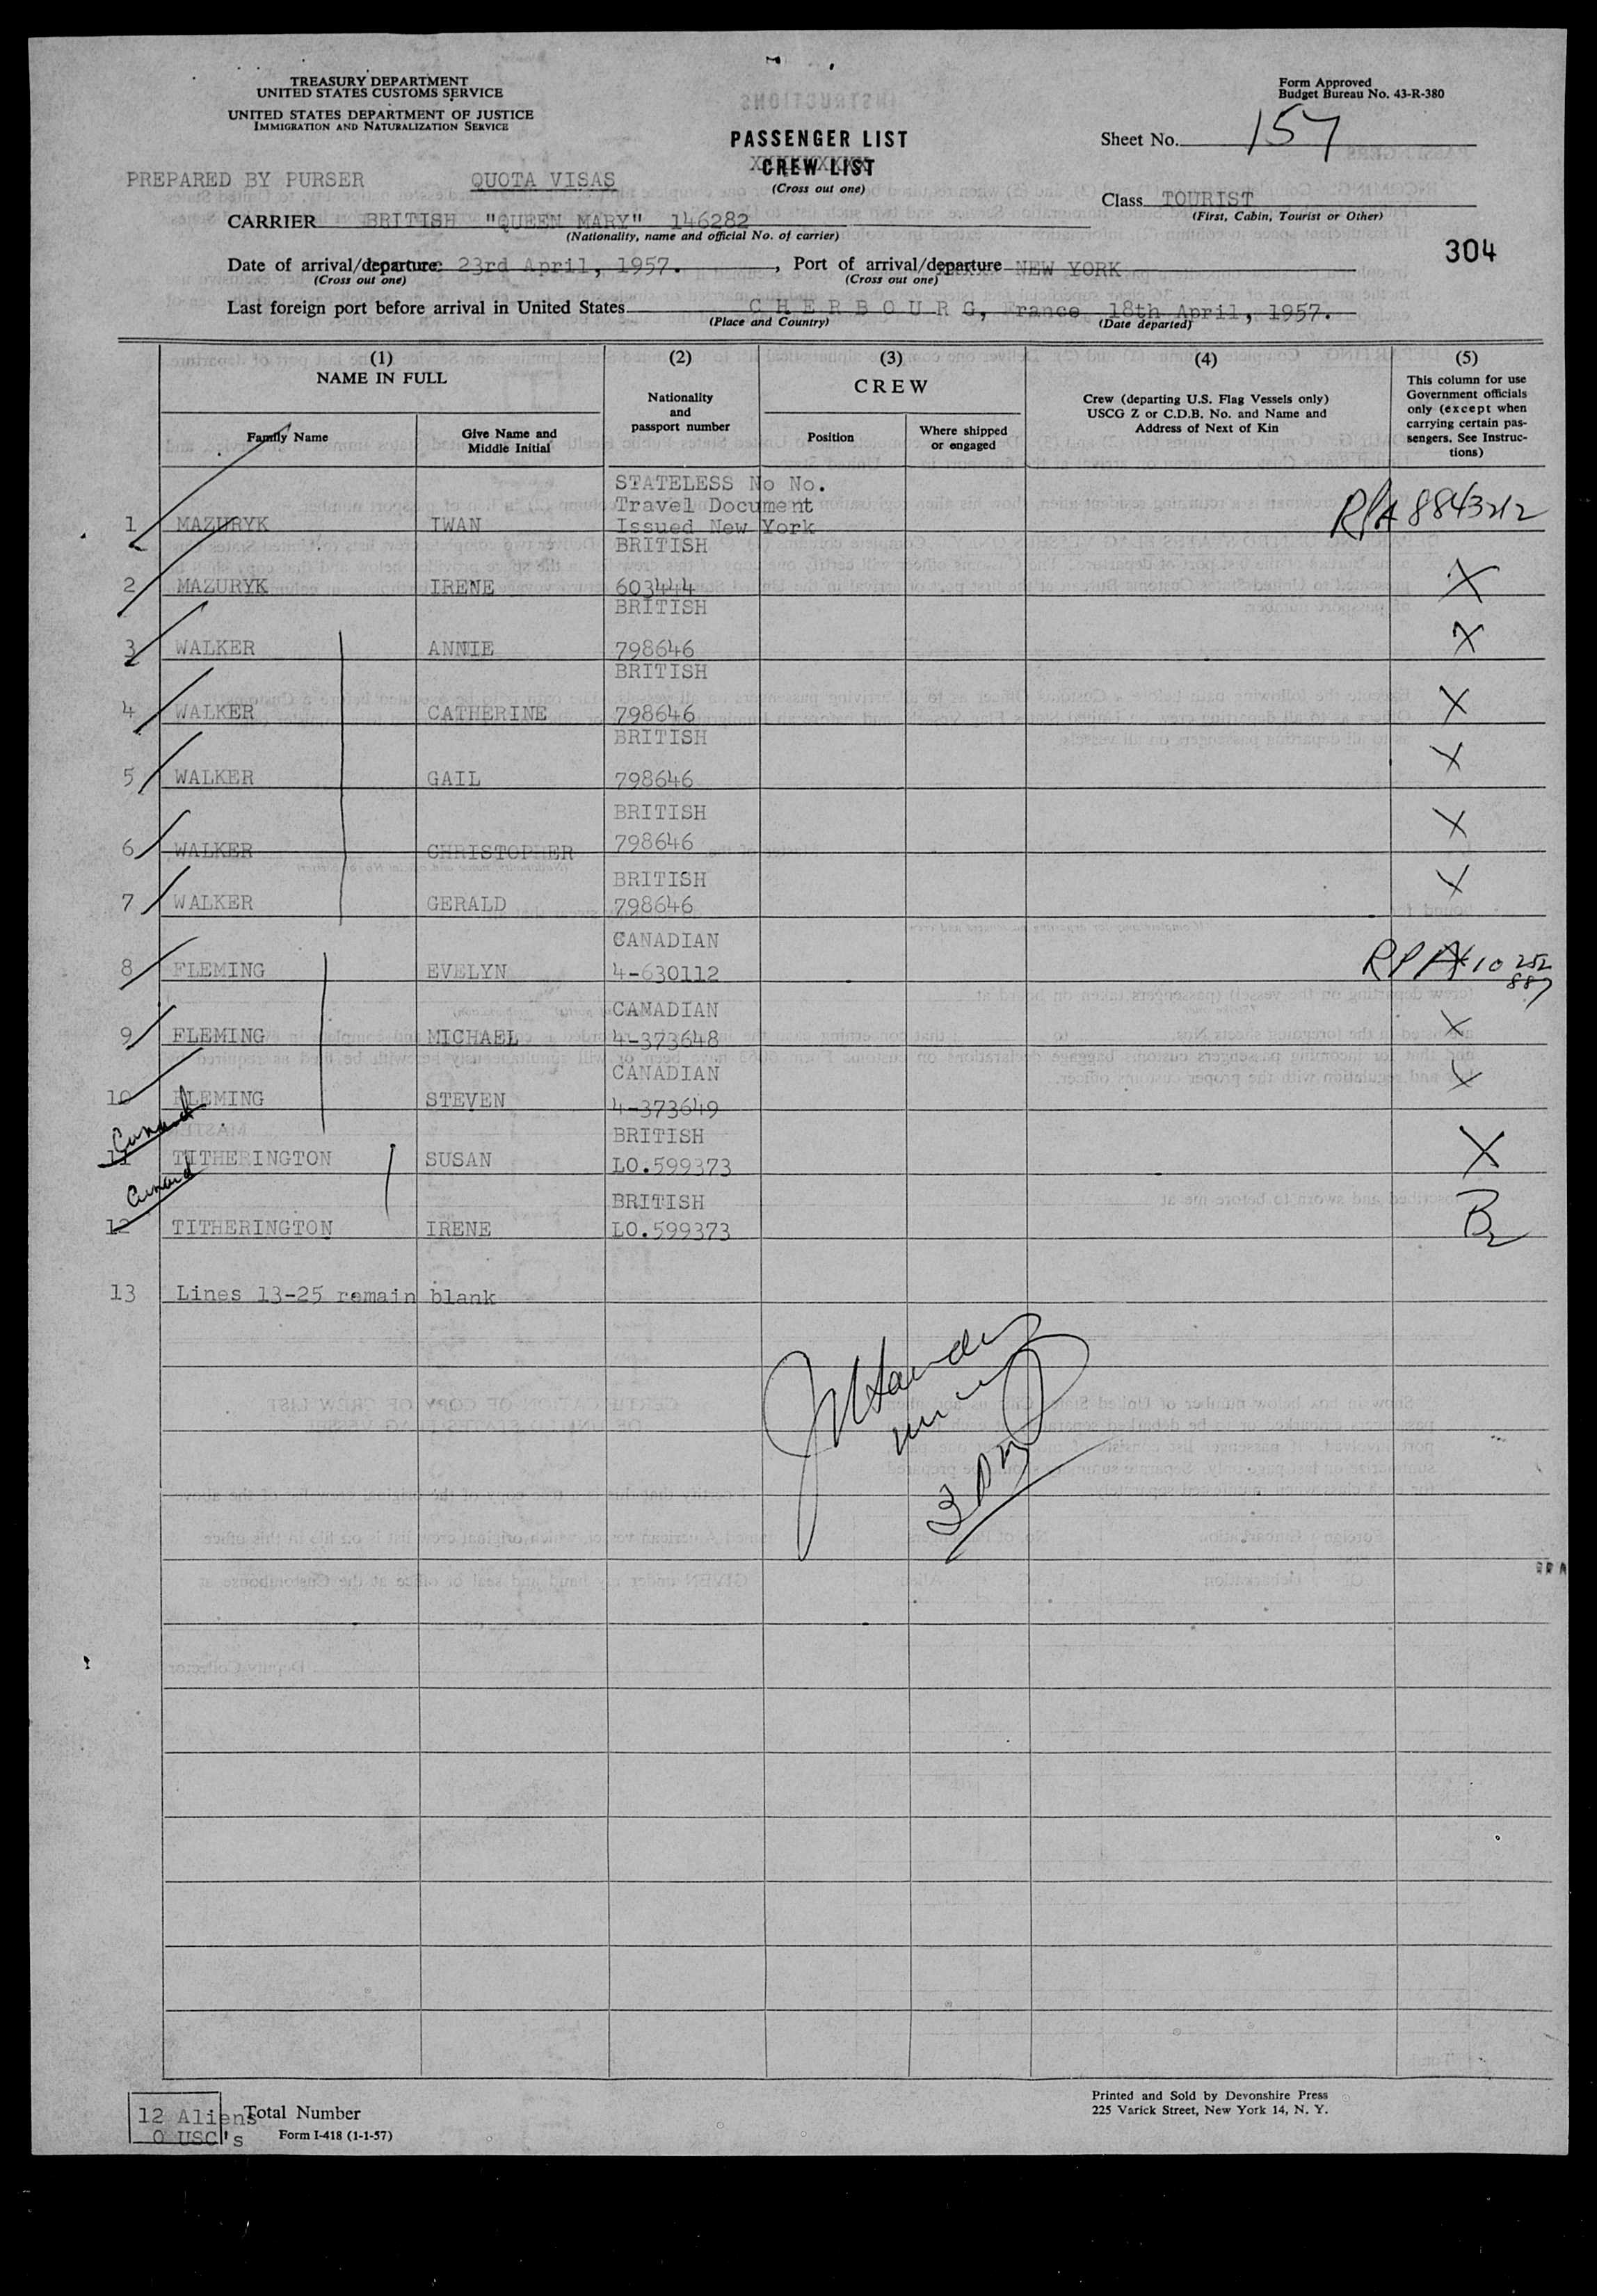 TREASURY DEPARTMENT
UNITED STATES CUSTOMS SERVICE
UNITED STATES DEPARTMENT OF JUSTICE
IMMIGRATION AND NATURALIZATION SERVICE
Form Approved
Budget Bureau No. 43-R-380
PASSENGER LIST
CREW LIST
(Cross out one)
Sheet No. 157
PREPARED BY PURSER QUOTA VISAS
Class TOURIST
(First, Cabin, Tourist or Other)
CARRIER BRITISH "QUEEN MARY" 146282
(Nationality, name and official No. of carrier)
304
Date of arrival/departure: 23rd April, 1957. , Port of arrival/departure NEW YORK
(Cross out one) (Cross out one)
Last foreign port before arrival in United States C H E R B O U R G, France 18th April, 1957.
(Place and Country) (Date departed)
(1) (2) (3) (4) (5)
NAME IN FULL
Family Name
Give Name and
Middle Initial
Nationality
and
passport number
CREW
Position
Where shipped
or engaged
Crew (departing U.S. Flag Vessels only)
USCG Z or C.D.B. No. and Name and
Address of Next of Kin
This column for use
Government officials
only (except when
carrying certain pas-
sengers. See Instruc-
tions)
STATELESS No No.
Travel Document
1 MAZURYK IWAN Issued New York
BRITISH
2 MAZURYK IRENE 603444 X
BRITISH
3 WALKER ANNIE 798646 X
BRITISH
4 WALKER CATHERINE 798646 X
BRITISH
5 WALKER GAIL 798646 X
BRITISH
6 WALKER CHRISTOPHER 798646 X
BRITISH
7 WALKER GERALD 798646 X
CANADIAN
8 FLEMING EVELYN 4-630112 RPA 10 252
887
CANADIAN
9 FLEMING MICHAEL 4-373648 X
CANADIAN
10 FLEMING STEVEN 4-373649 X
Cunard
BRITISH
11 TITHERINGTON SUSAN LO.599373 X
Cunard
BRITISH
12 TITHERINGTON IRENE LO.599373 B2
13 Lines 13-25 remain blank
12 Aliens
0 USC's
Total Number
Form I-418 (1-1-57)
Printed and Sold by Devonshire Press
225 Varick Street, New York 14, N. Y.